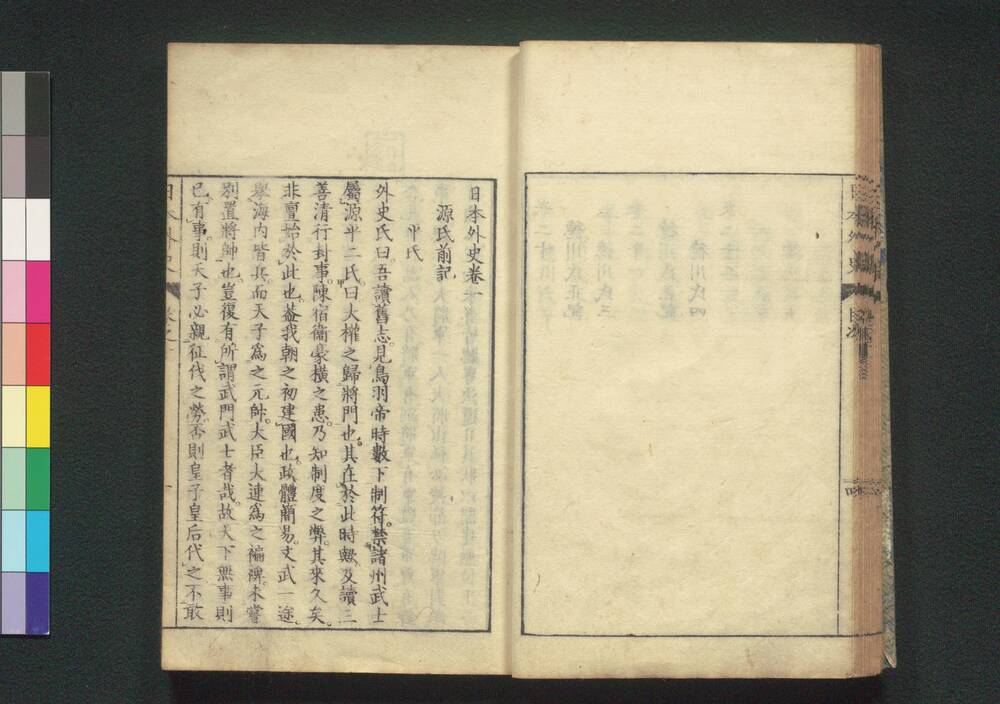 日本外史卷一
源氏前記
平氏
外史氏曰。吾讀舊志。見鳥羽帝時數下制符。禁諸州武士
屬源平二氏。曰大權之歸將門也。其在於此時歟。及讀三
善清行封事。陳宿衞豪橫之患。乃知制度之弊。其來久矣。
非亶始於此也。葢我朝之初建國也。政體簡易。文武一途。
舉海内皆兵。而天子爲之元帥。大臣大連爲之褊裨。未嘗
別置將帥也。豈復有所謂武門武士者哉。故天下無事則
已。有事。則天子必親征伐之勞。否則皇子皇后代之。不敢
日本外史
一
日本外史
目次